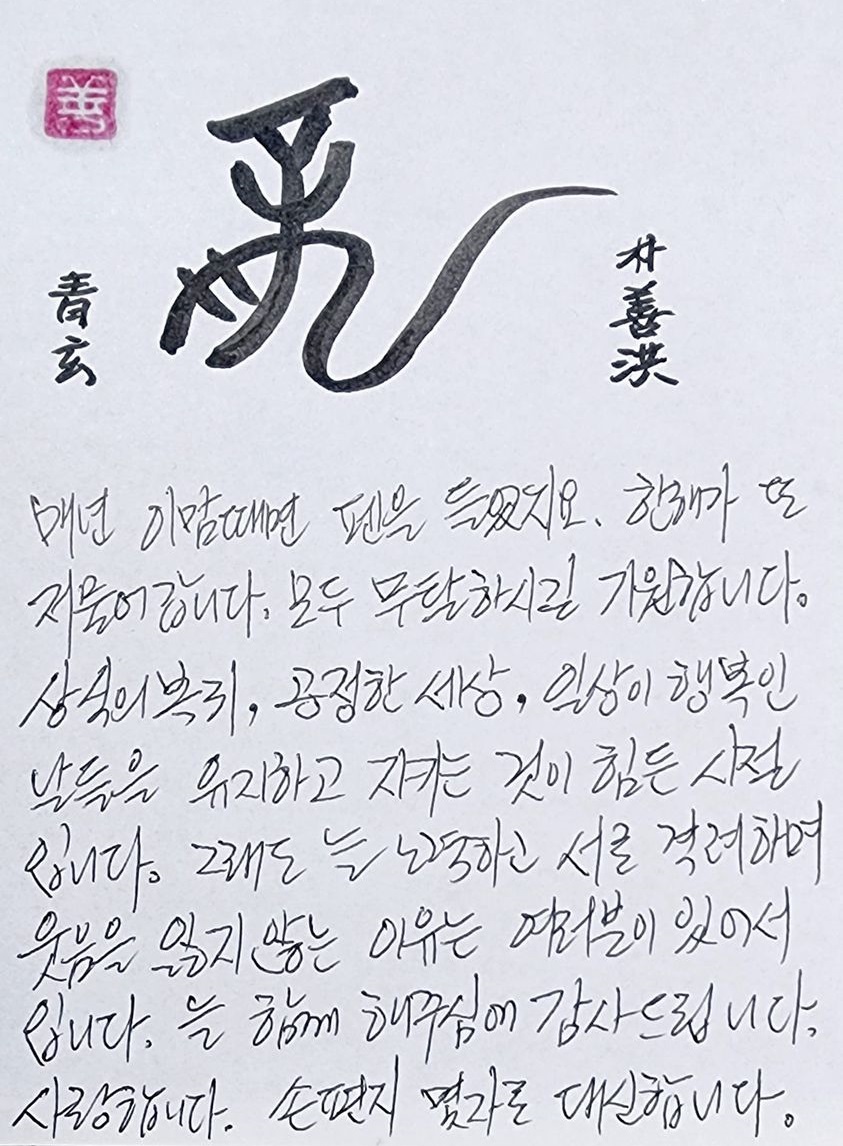 善
青玄
朴善洪
매년 이맘때면 펜을 들었지요. 한해가 또
저물어갑니다. 모두 무탈하시길 기원합니다.
상식의 복귀, 공정한 세상, 일상이 행복인
날들을 유지하고 지키는 것이 힘든 시절
입니다. 그래도 늘 노력하고 서로 격려하며
웃음을 잃지않는 이유는 여러분이 있어서
입니다. 늘 함께 해주심에 감사드립니다.
사랑합니다. 손편지 몇자로 대신합니다.